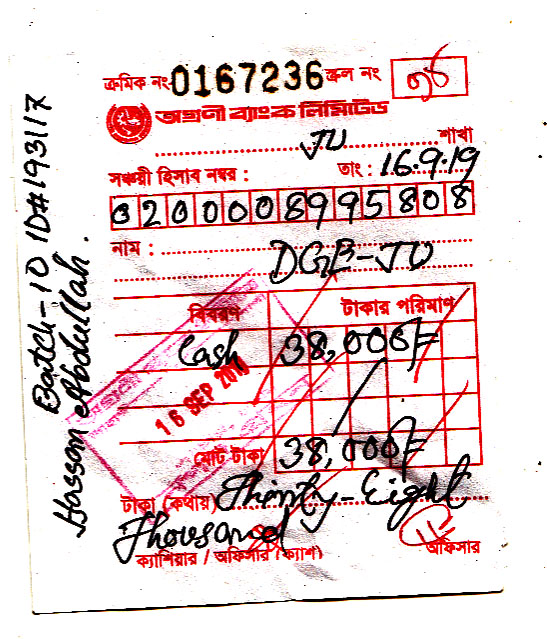 ক্রমিক নং 0167236 স্ক্রল নং
অগ্রণী ব্যাংক লিমিটেড
JU শাখা
সঞ্চয়ী হিসাব নম্বর : তাং : 16.9.19
0200008995808
নাম :
DGE-JU
বিবরণ টাকার পরিমাণ
Cash 38,000/=
16 SEP
মোট টাকা 38,000/=
টাকা (কথায়) Thirty-Eight
Thousand
ক্যাশিয়ার / অফিসার (ক্যাশ) অফিসার
Batch-10 ID#193117
Hassan Abdullah.